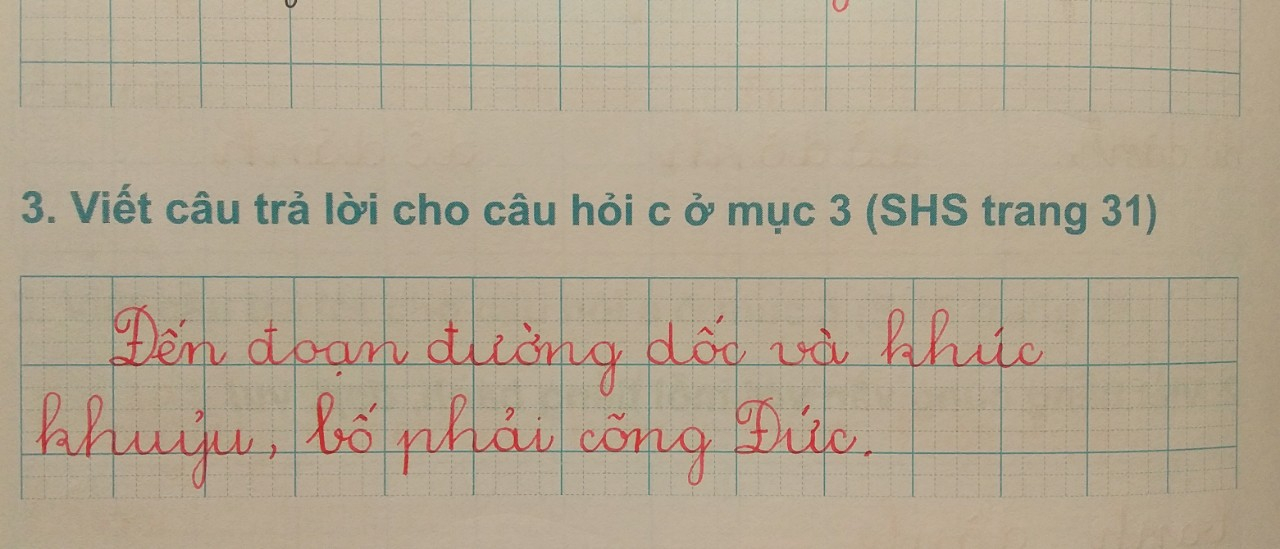 3. Viết câu trả lời cho câu hỏi c ở mục 3 (SHS trang 31)
Đến đoạn đường dốc và khúc
khuỷu, bố phải cõng Đức.